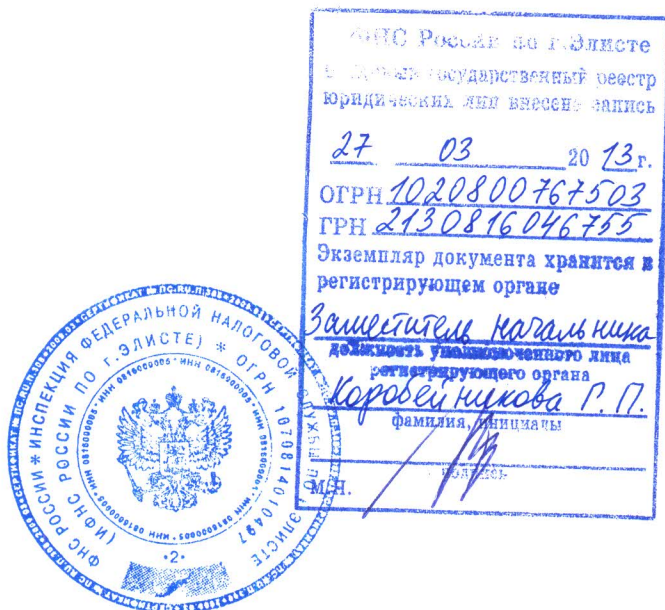 ФНС России по г.Элисте
государственный реестр
юридических лиц внесена запись
27 03 20 13 г.
ОГРН 1020800767503
ГРН 2130816046755
Экземпляр документа хранится в
регистрирующем органе
Заместитель начальника
должность уполномоченного лица
регистрирующего органа
Коробейникова Г. П.
фамилия, инициалы
подпись
М.П.
ФНС РОССИИ * ИНСПЕКЦИЯ ФЕДЕРАЛЬНОЙ НАЛОГОВОЙ СЛУЖБЫ ПО Г. ЭЛИСТЕ
(ИФНС РОССИИ ПО Г.ЭЛИСТЕ) * ОГРН 1070814010497
ИНН 0816000005 * ИНН 0816000005 * ИНН 0816000005 * ИНН 0816000005
*2*